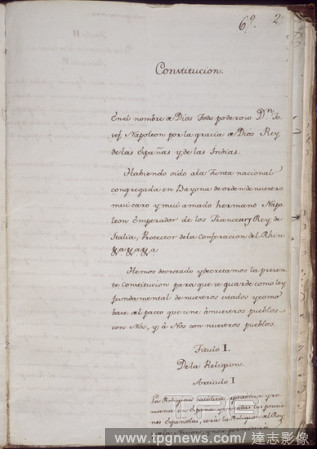 6.º 2
Constitucion.
En el nombre de Dios Todo poderoso Dn. Jo-
sef Napoleon por la gracia de Dios Rey
de las Españas y de las Indias.
Habiendo oido a la Junta nacional
congregada en Bayona de orden de nuestro
mui caro y mui amado hermano Napo-
leon Emperador de los Franceses y Rey de
Italia, Protector de la Confederacion del Rhin
&a &a &a
Hemos decretado y decretamos la presen-
te Constitucion para que se guarde como ley
fundamental de nuestros estados y como
base del pacto que une á nuestros pueblos
con Nós, y á Nós con nuestros pueblos.
Titulo I.
De la Religion.
Articulo I
La Religion catolica, apostolica y ro-
mana en España y
Españolas, será la Religion del Rey
www.tpgnews.com / 達志影像